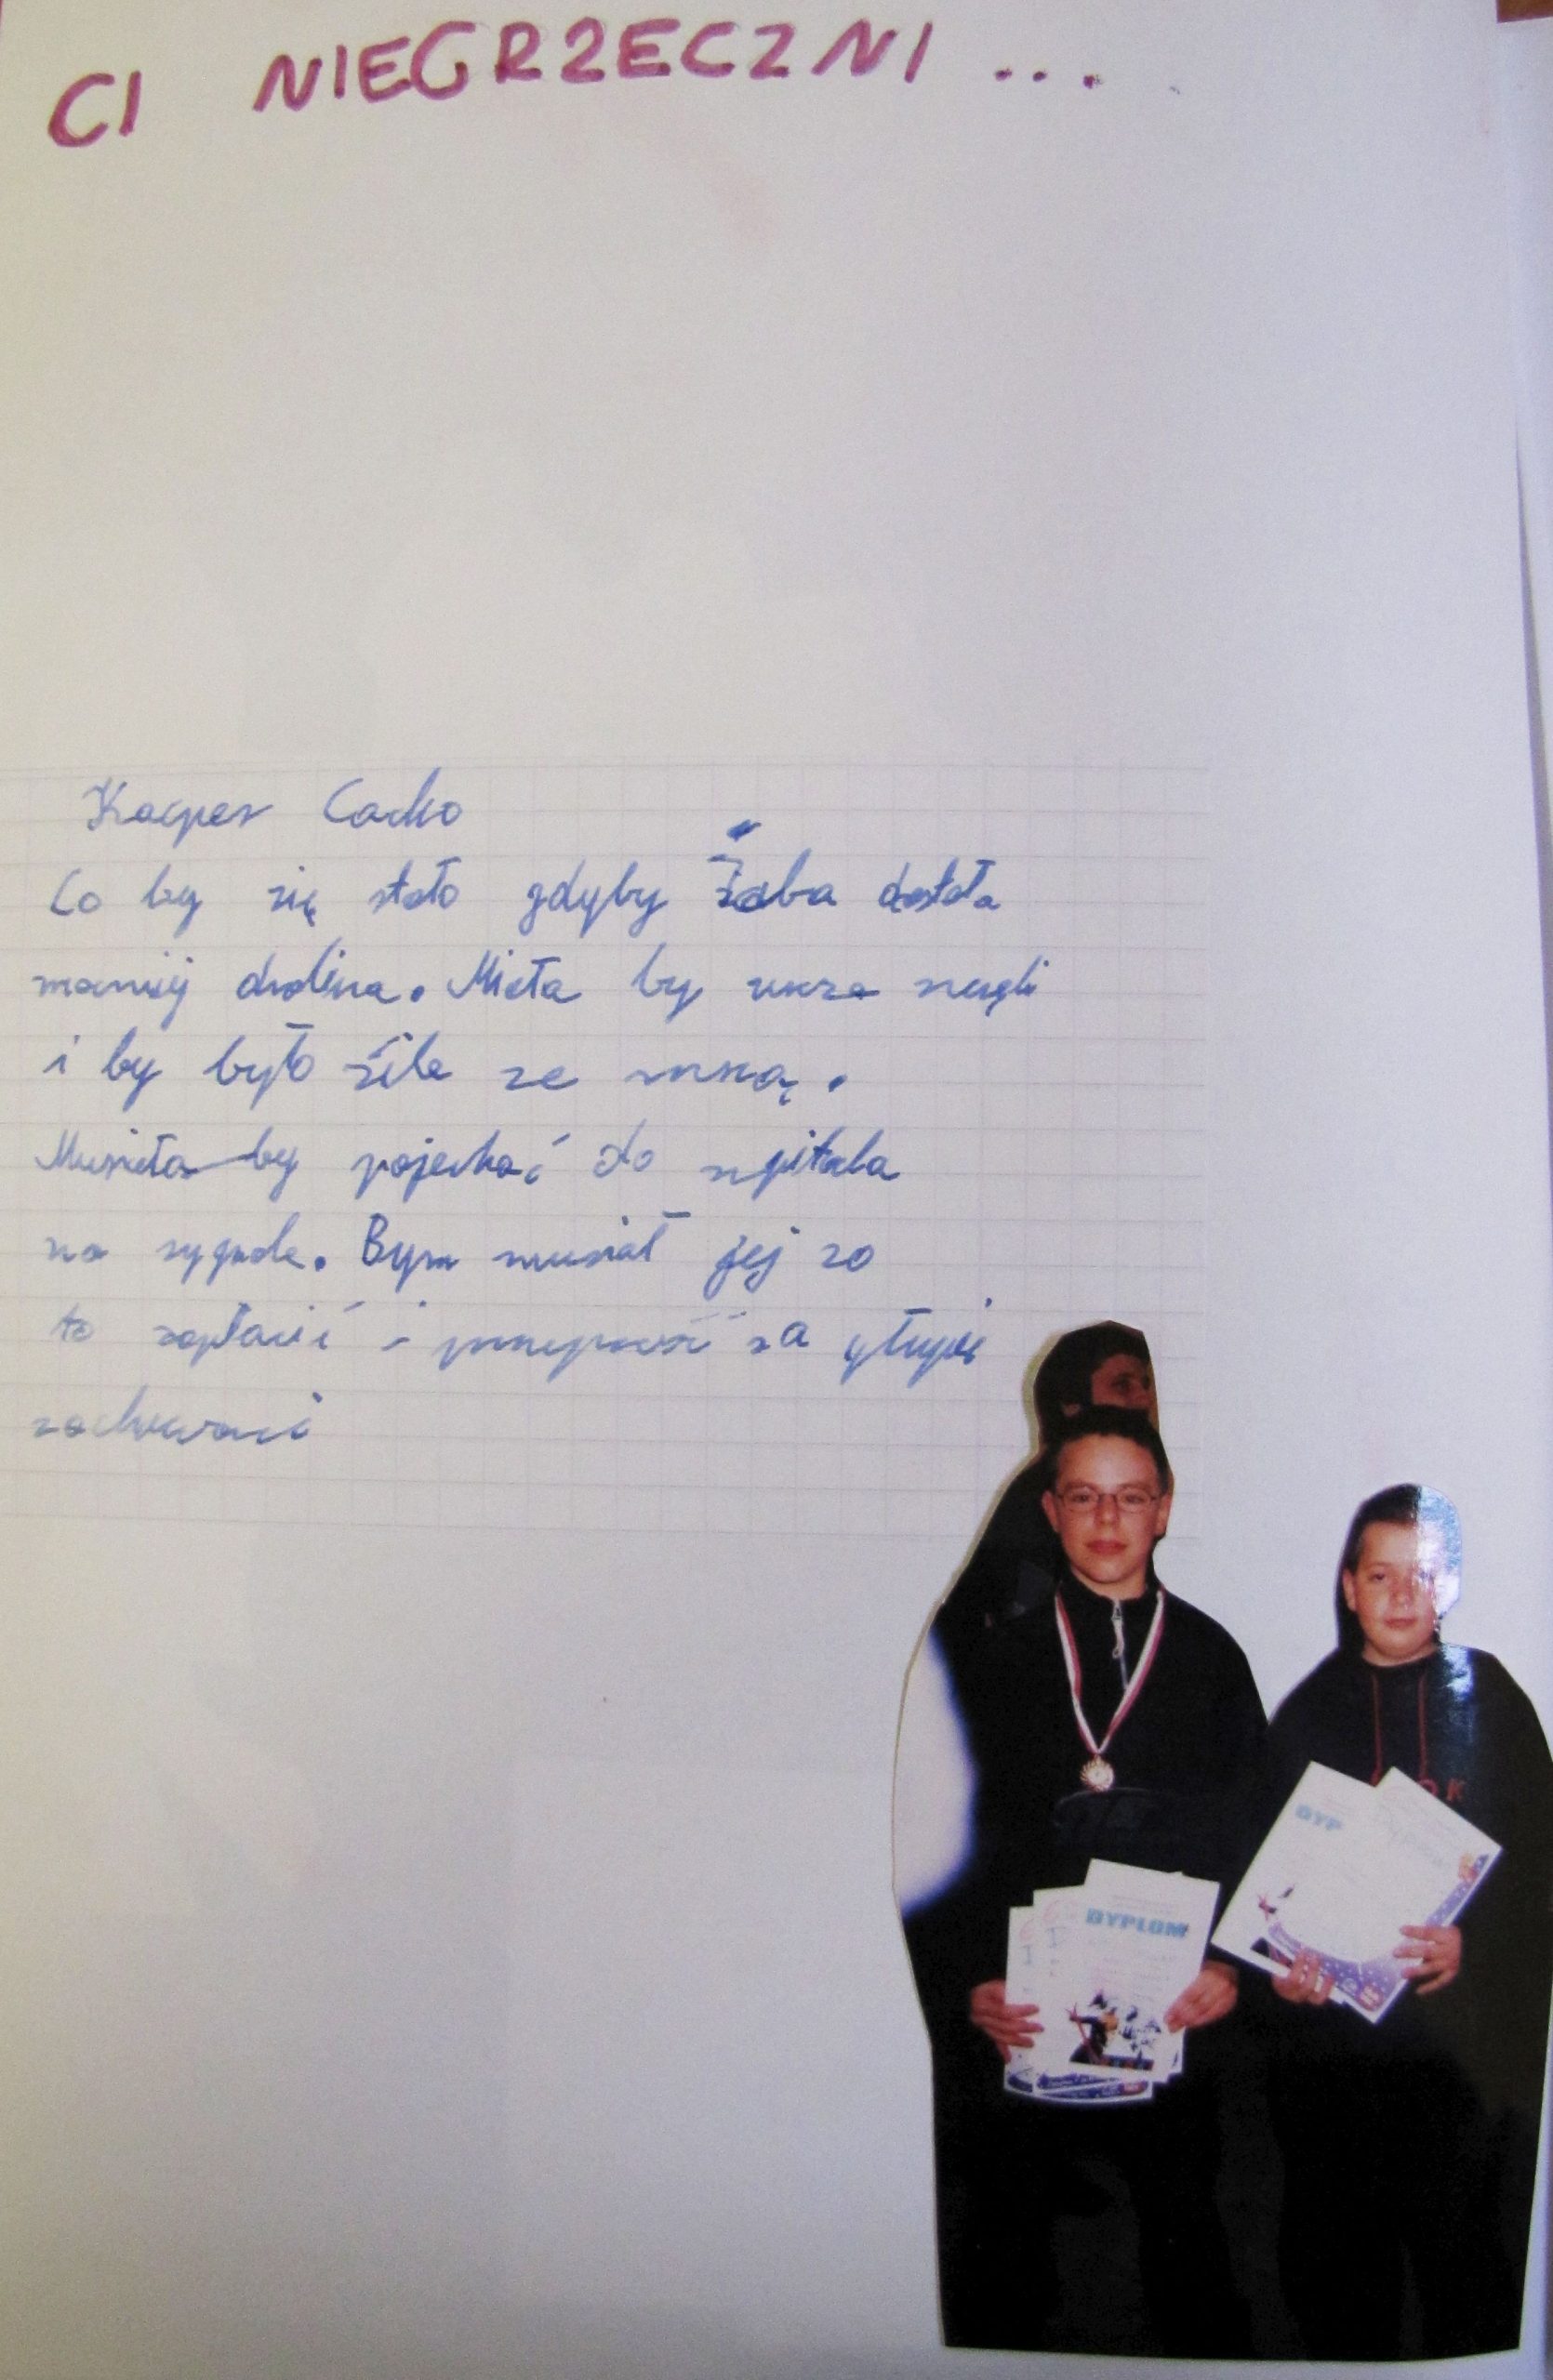 CI NIEGRZECZNI ...
Kacper Cacko
Co by się stało gdyby Żaba dostała
by
i by było źile ze mną.
Musiała by pojechać do szpitala
na sygnale. Bym musiał jej za
to zapłacić i za głupie
DYPLOM
DYP
OK